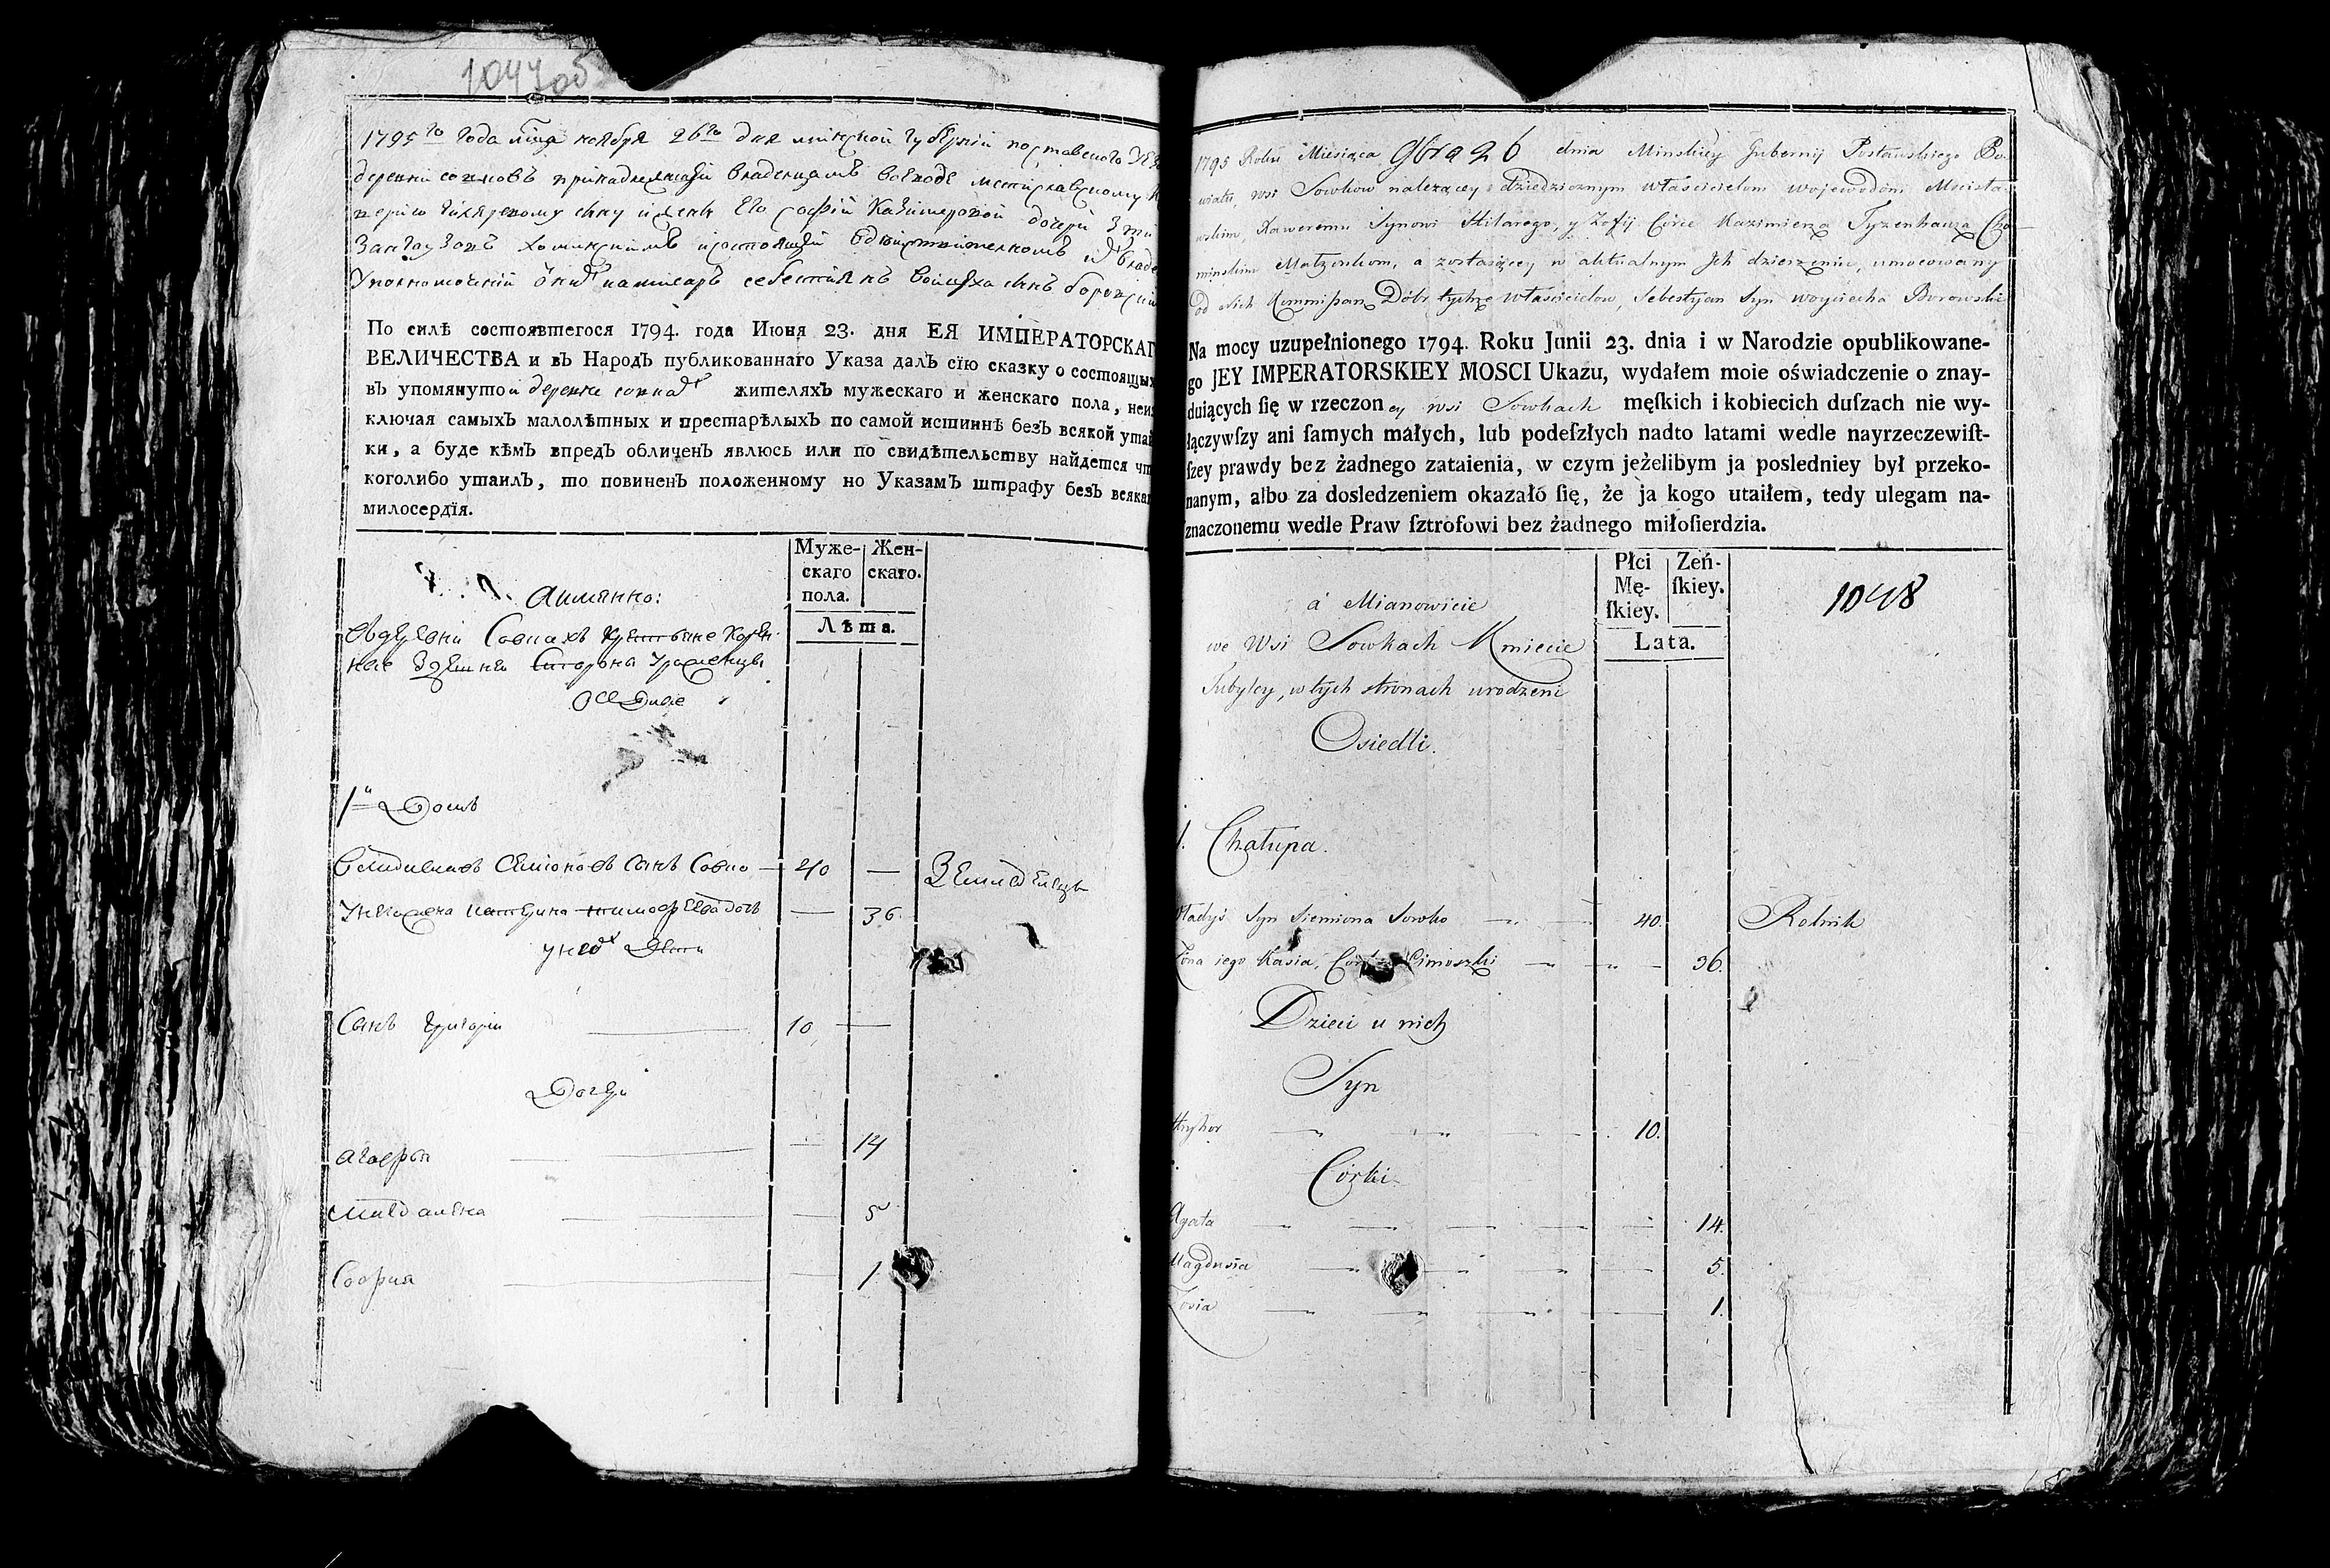 1047 об
1795го года мца ноября 26го дня минской губерніи поставского
деревни совковъ принадлежащей владенцамъ воеводе мстиславскому
сыну и жены Его софіи Казимеровой дочери
хоминскимъ
Уполномоченій себестіянъ войцеха сынъ
По силѣ состоявшегося 1794. года Июня 23. дня ЕЯ ИМПЕРАТОРСКАГ
ВЕЛИЧЕСТВА и въ Народъ публикованнаго Указа далъ сїю сказку о состоящыхъ
въ упомянутой деревне совка жителяхъ мужескаго и женскаго пола, неис
ключая самыхъ малолѣтныхъ и престарѣлыхъ по самой истиннѣ безъ всякой утай
ки, а буде кѣмъ впредъ обличенъ явлюсь или по свидѣтельству найдется чт
коголибо утаилъ, то повиненъ положенному по Указамъ штрафу безъ всякаг
милосердїя.
Муже-скаго пола. Жен-скаго.
Лѣта.
Аимянно:
Вдеревни Совкахъ Крестьяне Корен-
ные Здешней Стороны Уроженцы
Оседлые
1й Домъ
Владиславъ Семіоновъ Сынъ Совко — 40 — Земледелецъ
Унего жена Катерина тимофеева дочь — 36.
У нихъ Дети
Сынъ Григорій 10 —
Дочери
Агафья — 14
Магдалена — 5
София — 1
1795 Roku Miesiąca 9bra 26 dnia Minskiey Gubernij Postawskiego Po-
wiatu, wsi Sowkow należącey dziedzicznym właścicielom wojewodom Mścisła-
wskim, Xaweremu Synowi Hilarego, y Zofij Córce Kazimierza Tyzenhauza Cho-
minskim Małzonkom, a zostaiącey w aktualnym Ich dzierzeniu, umocowany
od Nich Kommissarz Dóbr tychże Właścicielow, Sebestyan Syn woyciecha Borowski
Na mocy uzupełnionego 1794. Roku Junii 23. dnia i w Narodzie opublikowane-
go JEY IMPERATORSKIEY MOSCI Ukazu, wydałem moie oświadczenie o znay-
duiących ſię w rzeczoney wsi Sowkach męſkich i kobiecich duſzach nie wy-
łączywſzy ani ſamych małych, lub podeſzłych nadto latami wedle nayrzeczewiſt-
ſzey prawdy bez żadnego zataienia, w czym jeżelibym ja posledniey był przeko-
nanym, albo za dosledzeniem okazało ſię, że ja kogo utaiłem, tedy ulegam na-
znaczonemu wedle Praw ſztrofowi bez żadnego miłoſierdzia.
Płci Mę-ſkiey. Zeń-ſkiey.
Lata.
1048
a Mianowicie
we Wsi Sowkach Kmiecie
Tubylcy, w tych stronach urodzeni
Osiedli.
1. Chałupa.
Władyś Syn Siemiona Sowko 40. Rolnik
Żona iego Kasia, Córka Cimoszki 36.
Dzieci u nich
Syn
Hryhor 10.
Córki
Agata 14.
Magdusia 5.
Zosia 1.